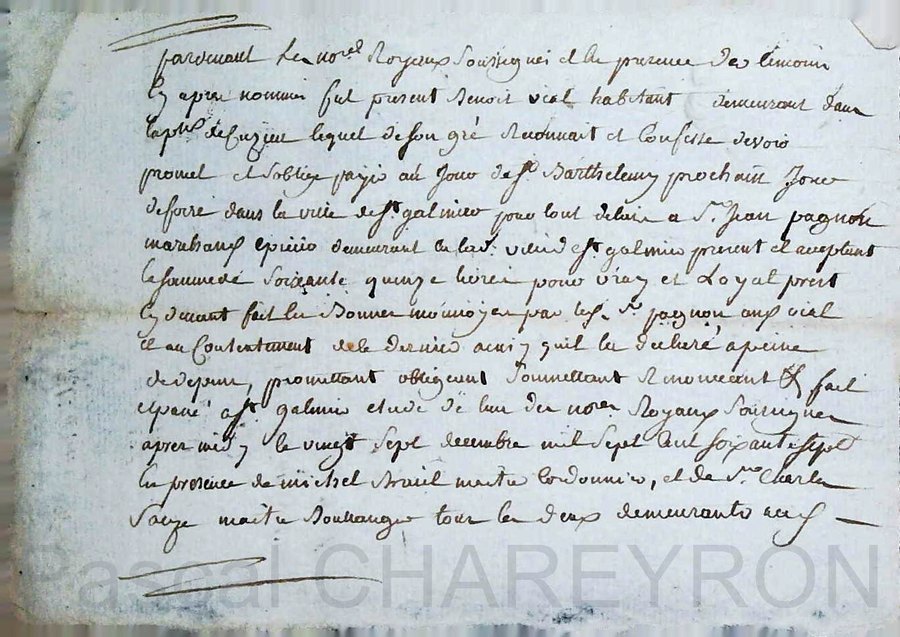 pardevant les no.res Royaux soussignés et en presence des temoins
cy apres nommés fut present Benoit vial habitant demeurant dans
la p.sse de Cuzieu lequel de son gré reconnait et confesse devoir
promet et s'oblige payer au jour de S.t Barthelemy prochain jour
de foire dans la ville de S.t galmier pour tout delais a S.r Jean pagnon
marchand epicier demeurant en lad. ville de S.t galmier present et acceptant
la somme de soixante quinze livres pour vray et Loyal prest
cy devant fait en Bonnes monnoyes par led. S.r pagnon aud. vial
et au Contentement de ce dernier ainsy qu'il l'a declaré a peine
de depens, promettant obligeant soumettant Renonceant & fait
et passé a S.t galmier etude de l'un des no.res Royaux soussignes
apres midy le vingt sept decembre mil sept cent soixante sept
En presence de michel maitre Cordonnier, et de S.r Charle
maitre Boulanger tous les deux demeurants
Pascal CHAREYRON